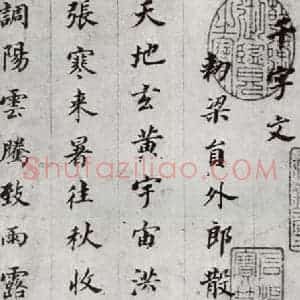 千字文
勅梁員外郎散
天地玄黄宇宙洪
張寒来暑往秋收
調陽雲騰致雨露
Shufaziliao.com